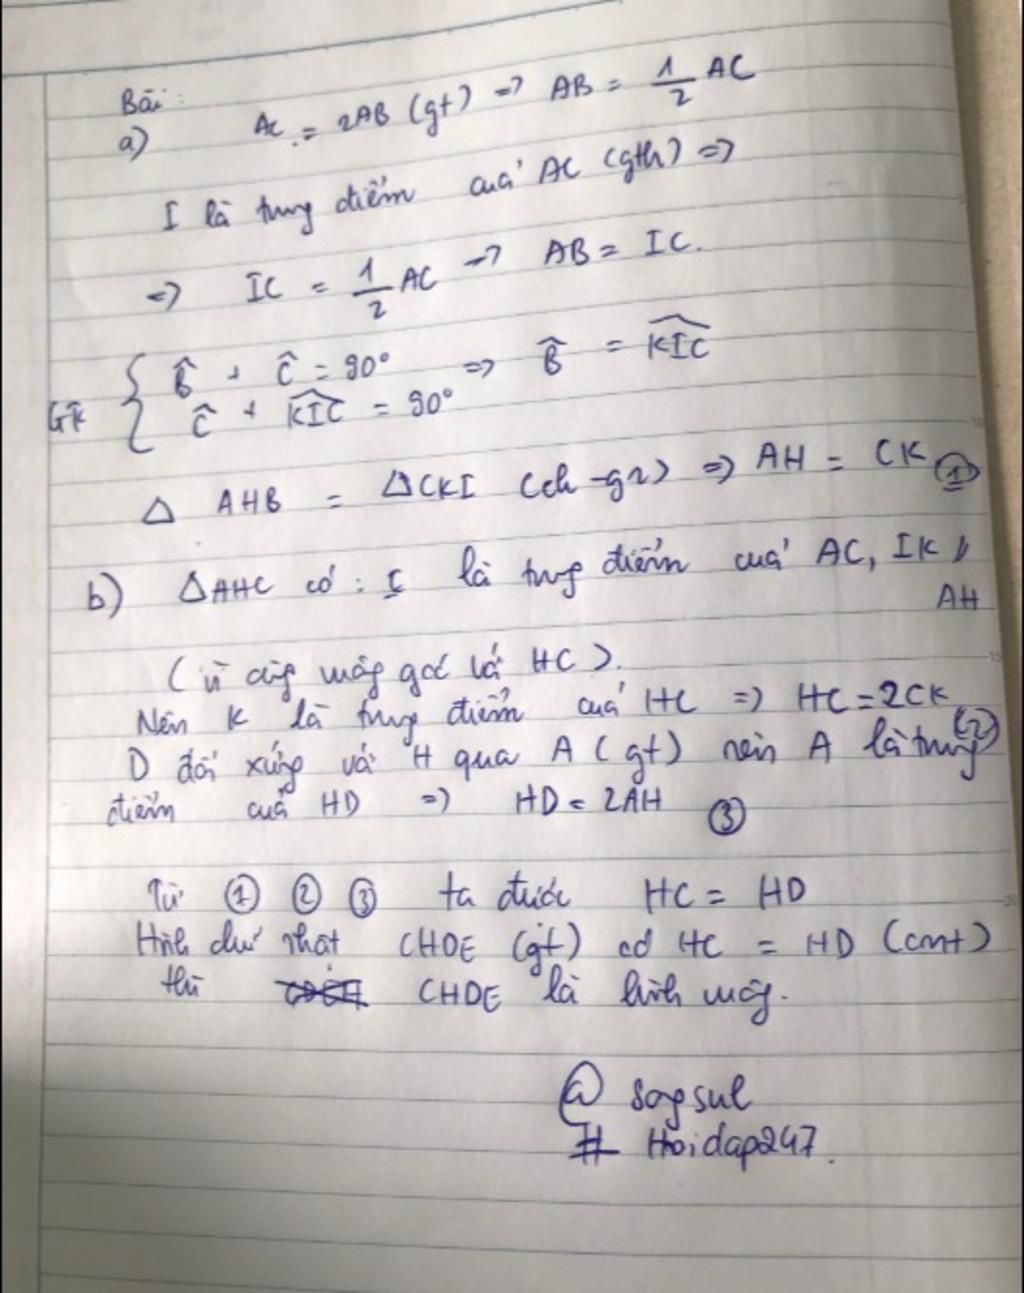 Bài:
a) AC = 2AB (gt) => AB = 1/2 AC
I là trung điểm của AC (gth) =>
=> IC = 1/2 AC => AB = IC.
{ B̂ + Ĉ = 90° => B̂ = K̂IC
{ Ĉ + K̂IC = 90°
△ AHB = △CKI (ch-gn) => AH = CK ①
b) △AHC có: I là trung điểm của AC, IK //
AH
(vì cùng vuông góc với HC).
Nên K là trung điểm của HC => HC = 2CK
(2)
D đối xứng với H qua A (gt) nên A là trung
điểm của HD => HD = 2AH ③
Từ ① ② ③ ta được HC = HD
Hình chữ nhật CHDE (gt) có HC = HD (cmt)
thì CHDE là hình vuông.
@ sogsul
# Hoidap247.